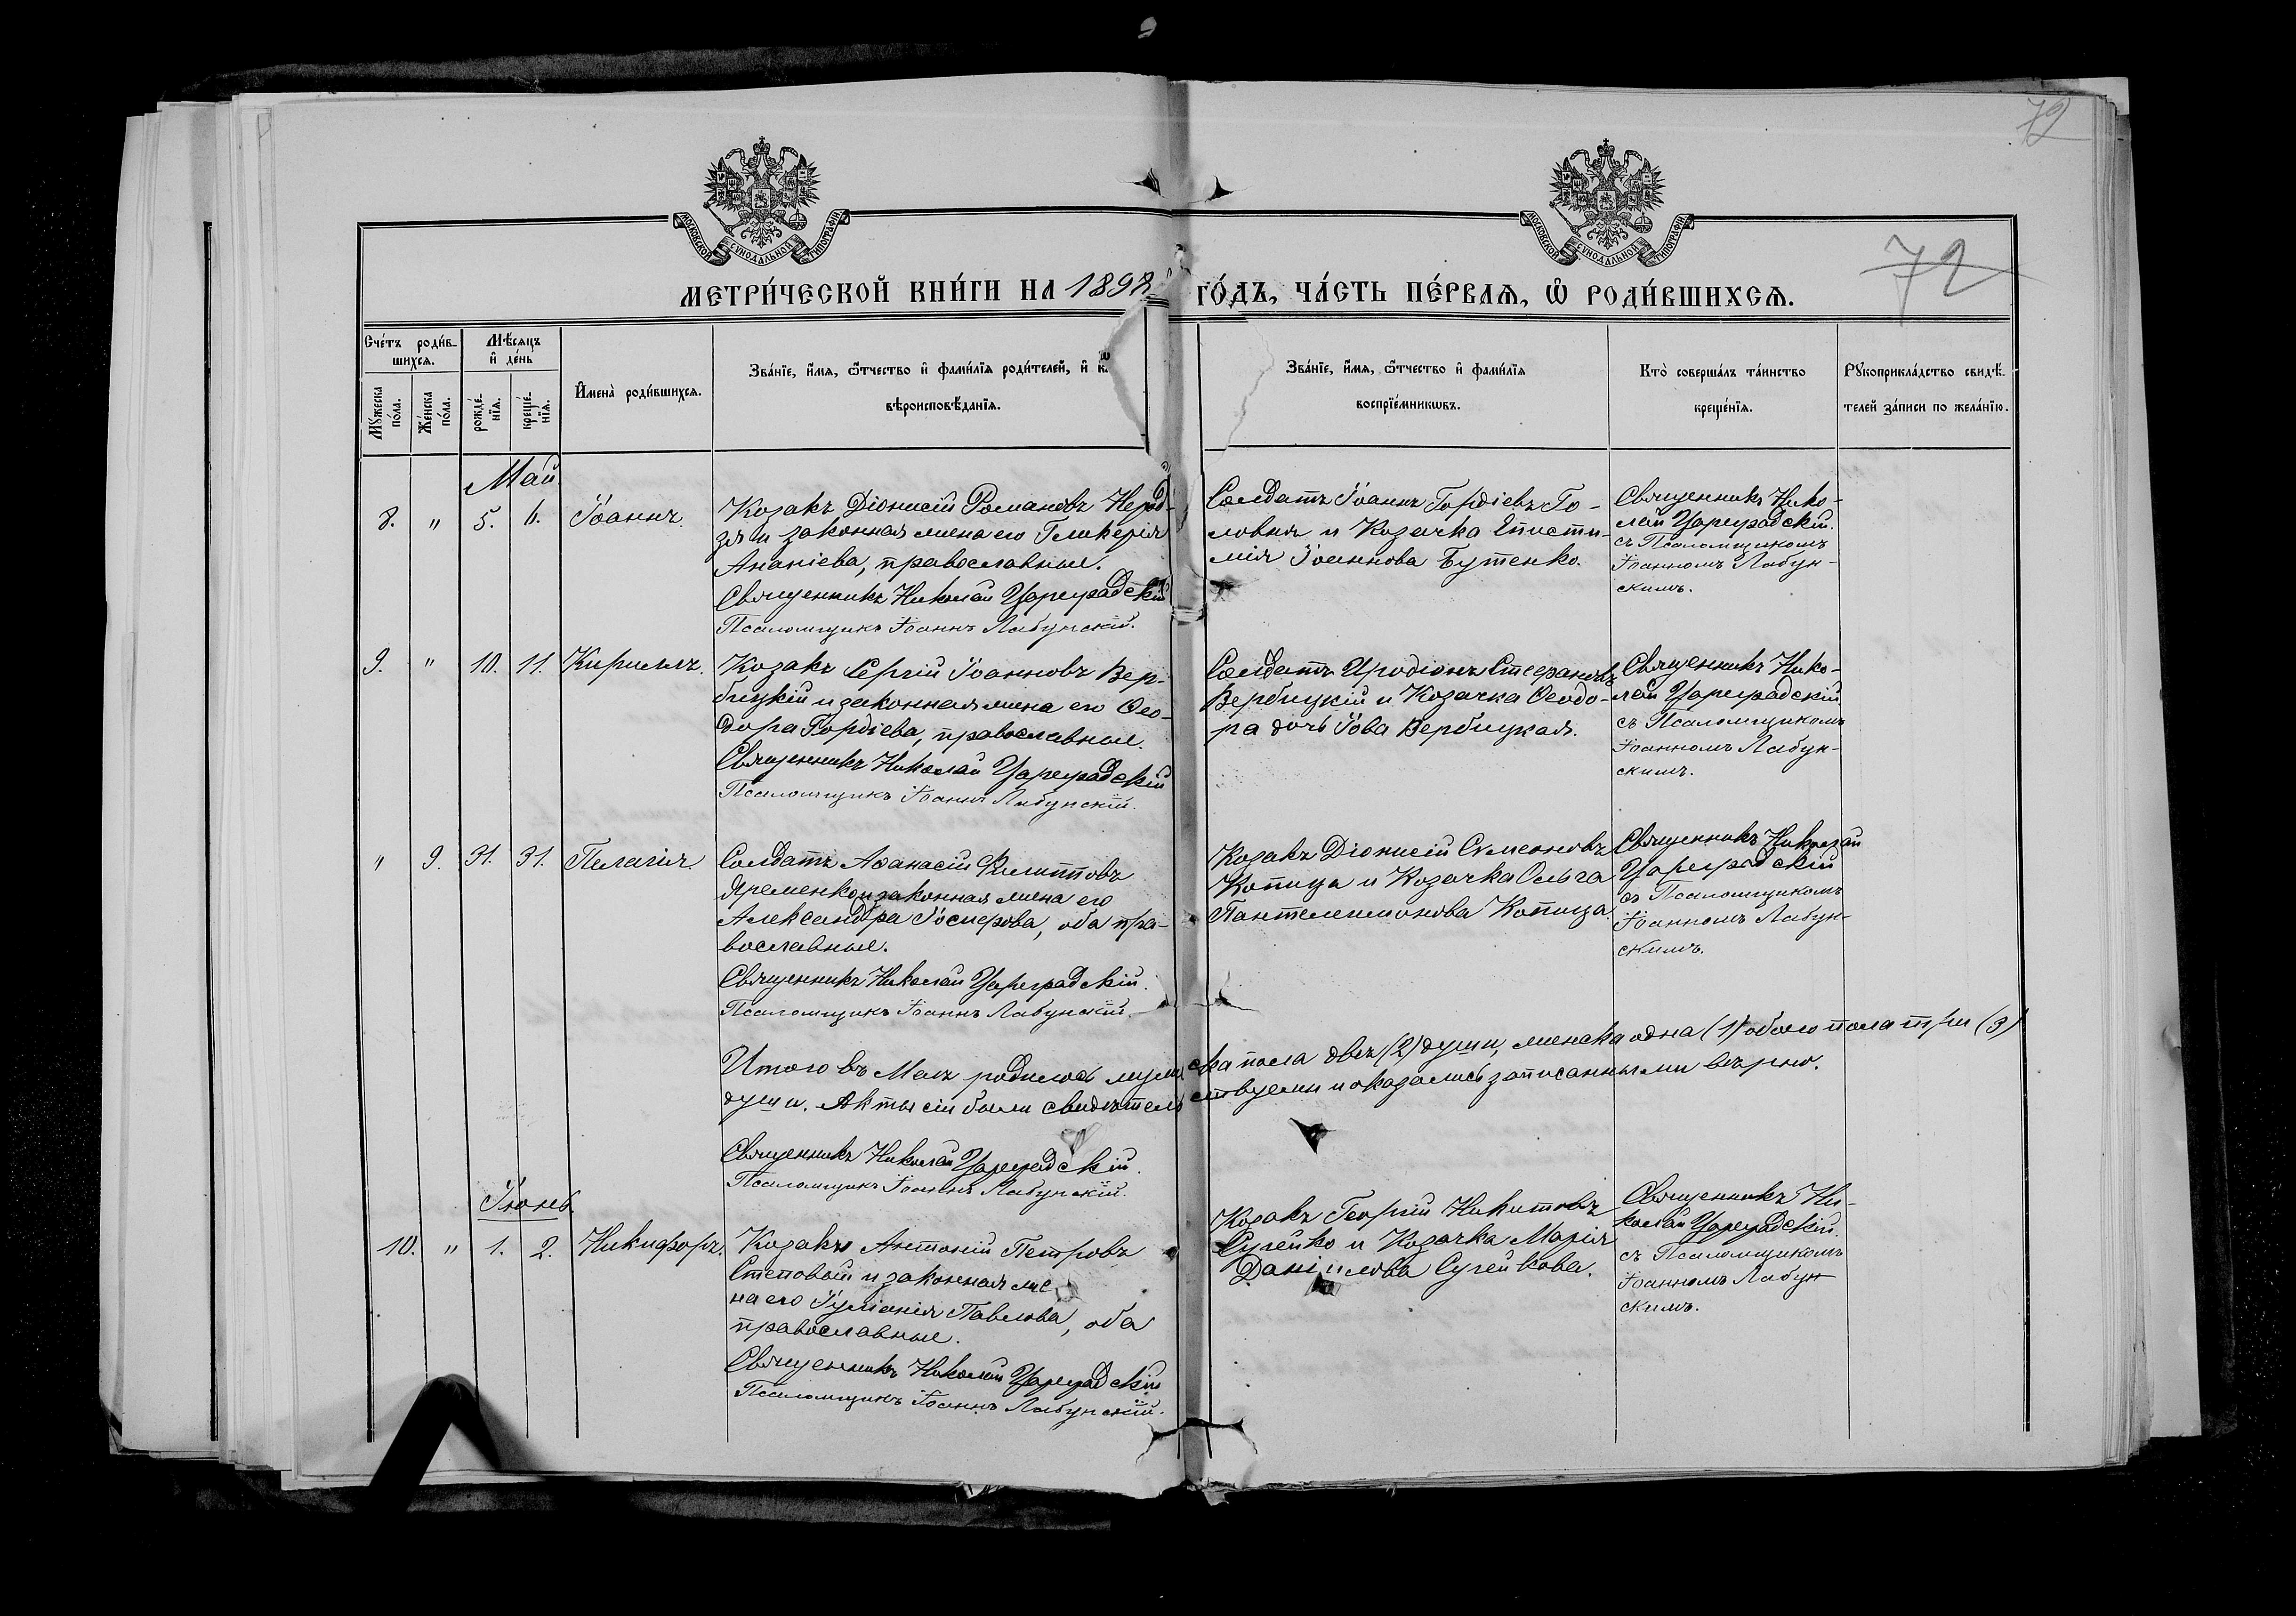 72
МОСКОВСКОЙ СУНОДАЛЬНОЙ ТИПОГРАФІИ
МОСКОВСКОЙ СУНОДАЛЬНОЙ ТИПОГРАФІИ
72
МЕТРИ́ЧЕСКОЙ КНИ́ГИ НА 1892
ГО́ДЪ, ЧА́СТЬ ПЕ́РВАЯ, Ѽ РОДИ́ВШИХСЯ.
Сче́тъ роди́в-
шихся.
Мꙋжеска по́ла.
Же́нска по́ла.
Мѣ́сяцъ
и҆ де́нь
рожде́-
нїѧ.
креще́-
нїѧ.
И҆мена̀ роди́вшихся.
Зва́нїе, и҆́мя, ѻ҆́тчество и҆ фами́лїя роди́телей, и҆ к
вѣроисповѣ́данїя.
Зва́нїе, и҆́мя, ѻ҆́тчество и҆ фами́лїя
воспрїе́мникωвъ.
Кто̀ соверша́лъ та́инство
креще́нїя.
Рꙋкоприкла́дство свидѣ́-
телей за́писи по жела́нїю.
Май
8. " 5. 6. Іоаннъ.
Козакъ Діонисій Романовъ Неред-
зя и законная жена его Гликерія
Ананіева, православные.
Священникъ Николай Цареградскій
Псаломщикъ Іоаннъ Лабунскій.
Солдатъ Іоаннъ Гордіевъ Го-
ловня и Козачка Еписти-
мія Іоаннова Бутенко.
Священникъ Нико-
лай Цареградскій.
съ Псаломщикомъ
Іоанномъ Лабун-
скимъ.
9. " 10. 11. Кириллъ.
Козакъ Сергій Іоанновъ Вер-
бицкій и законная жена его Ѳео-
дора Гордіева, православные.
Священникъ Николай Цареградскій
Псаломщикъ Іоаннъ Лабунскій.
Солдатъ Иродіонъ Стефановъ
Вербицкій и Козачка Ѳеодо-
ра дочь Іова Вербицкая.
Священникъ Нико-
лай Цареградскій
съ Псаломщикомъ
Іоанномъ Лабун-
скимъ.
" 9. 31. 31. Пелагія.
Солдатъ Аѳанасій Филипповъ
Яременко и законная жена его
Александра Іосифова, оба пра-
вославные.
Священникъ Николай Цареградскій.
Псаломщикъ Іоаннъ Лабунскій.
Козакъ Діонисій Сѵмеоновъ
Копица и Козачка Ольга
Пантелеимонова Копица.
Священникъ Николай
Цареградскій
съ Псаломщикомъ
Іоанномъ Лабун-
скимъ.
Итого въ Маѣ родилось мужеска пола двѣ (2) души, женска одна (1) обоего пола три (3)
души. Акты сіи были свидѣтельствуемы и оказались записанными вѣрно.
Священникъ Николай Цареградскій.
Псаломщикъ Іоаннъ Лабунскій.
Іюнь.
10. " 1. 2. Никифоръ.
Козакъ Антоній Петровъ
Степовый и законная же
на его Іуліанія Павлова, оба
православные.
Священникъ Николай Цареградскій
Псаломщикъ Іоаннъ Лабунскій.
Козакъ Георгій Никитовъ
Сулейко и Козачка Марія
Даніилова Сулейкова.
Священникъ Ни-
колай Цареградскій.
съ Псаломщикомъ
Іоанномъ Лабун
скимъ.